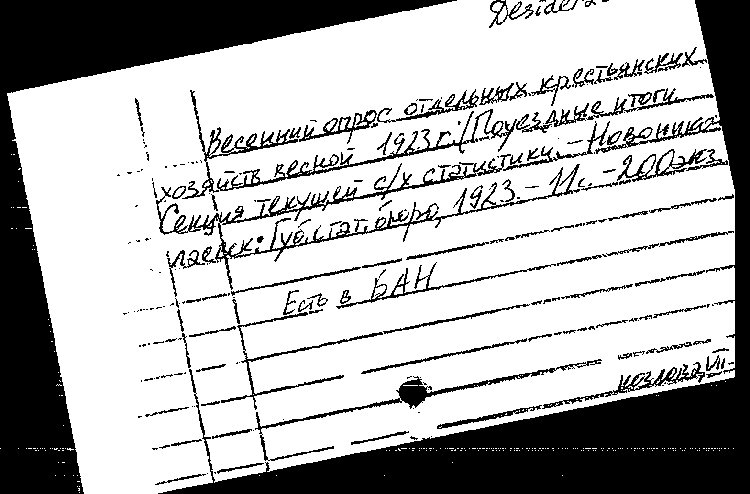 Весенний опрос отдельных крестьянских
хозяйств весной 1923 г.: /Поуездные итоги
Секция текущей с/х статистики. – Новонико-
лаевск: Губ. стат. бюро, 1923. – 11 с. – 200 экз.
Есть в БАН
козлова, VII-